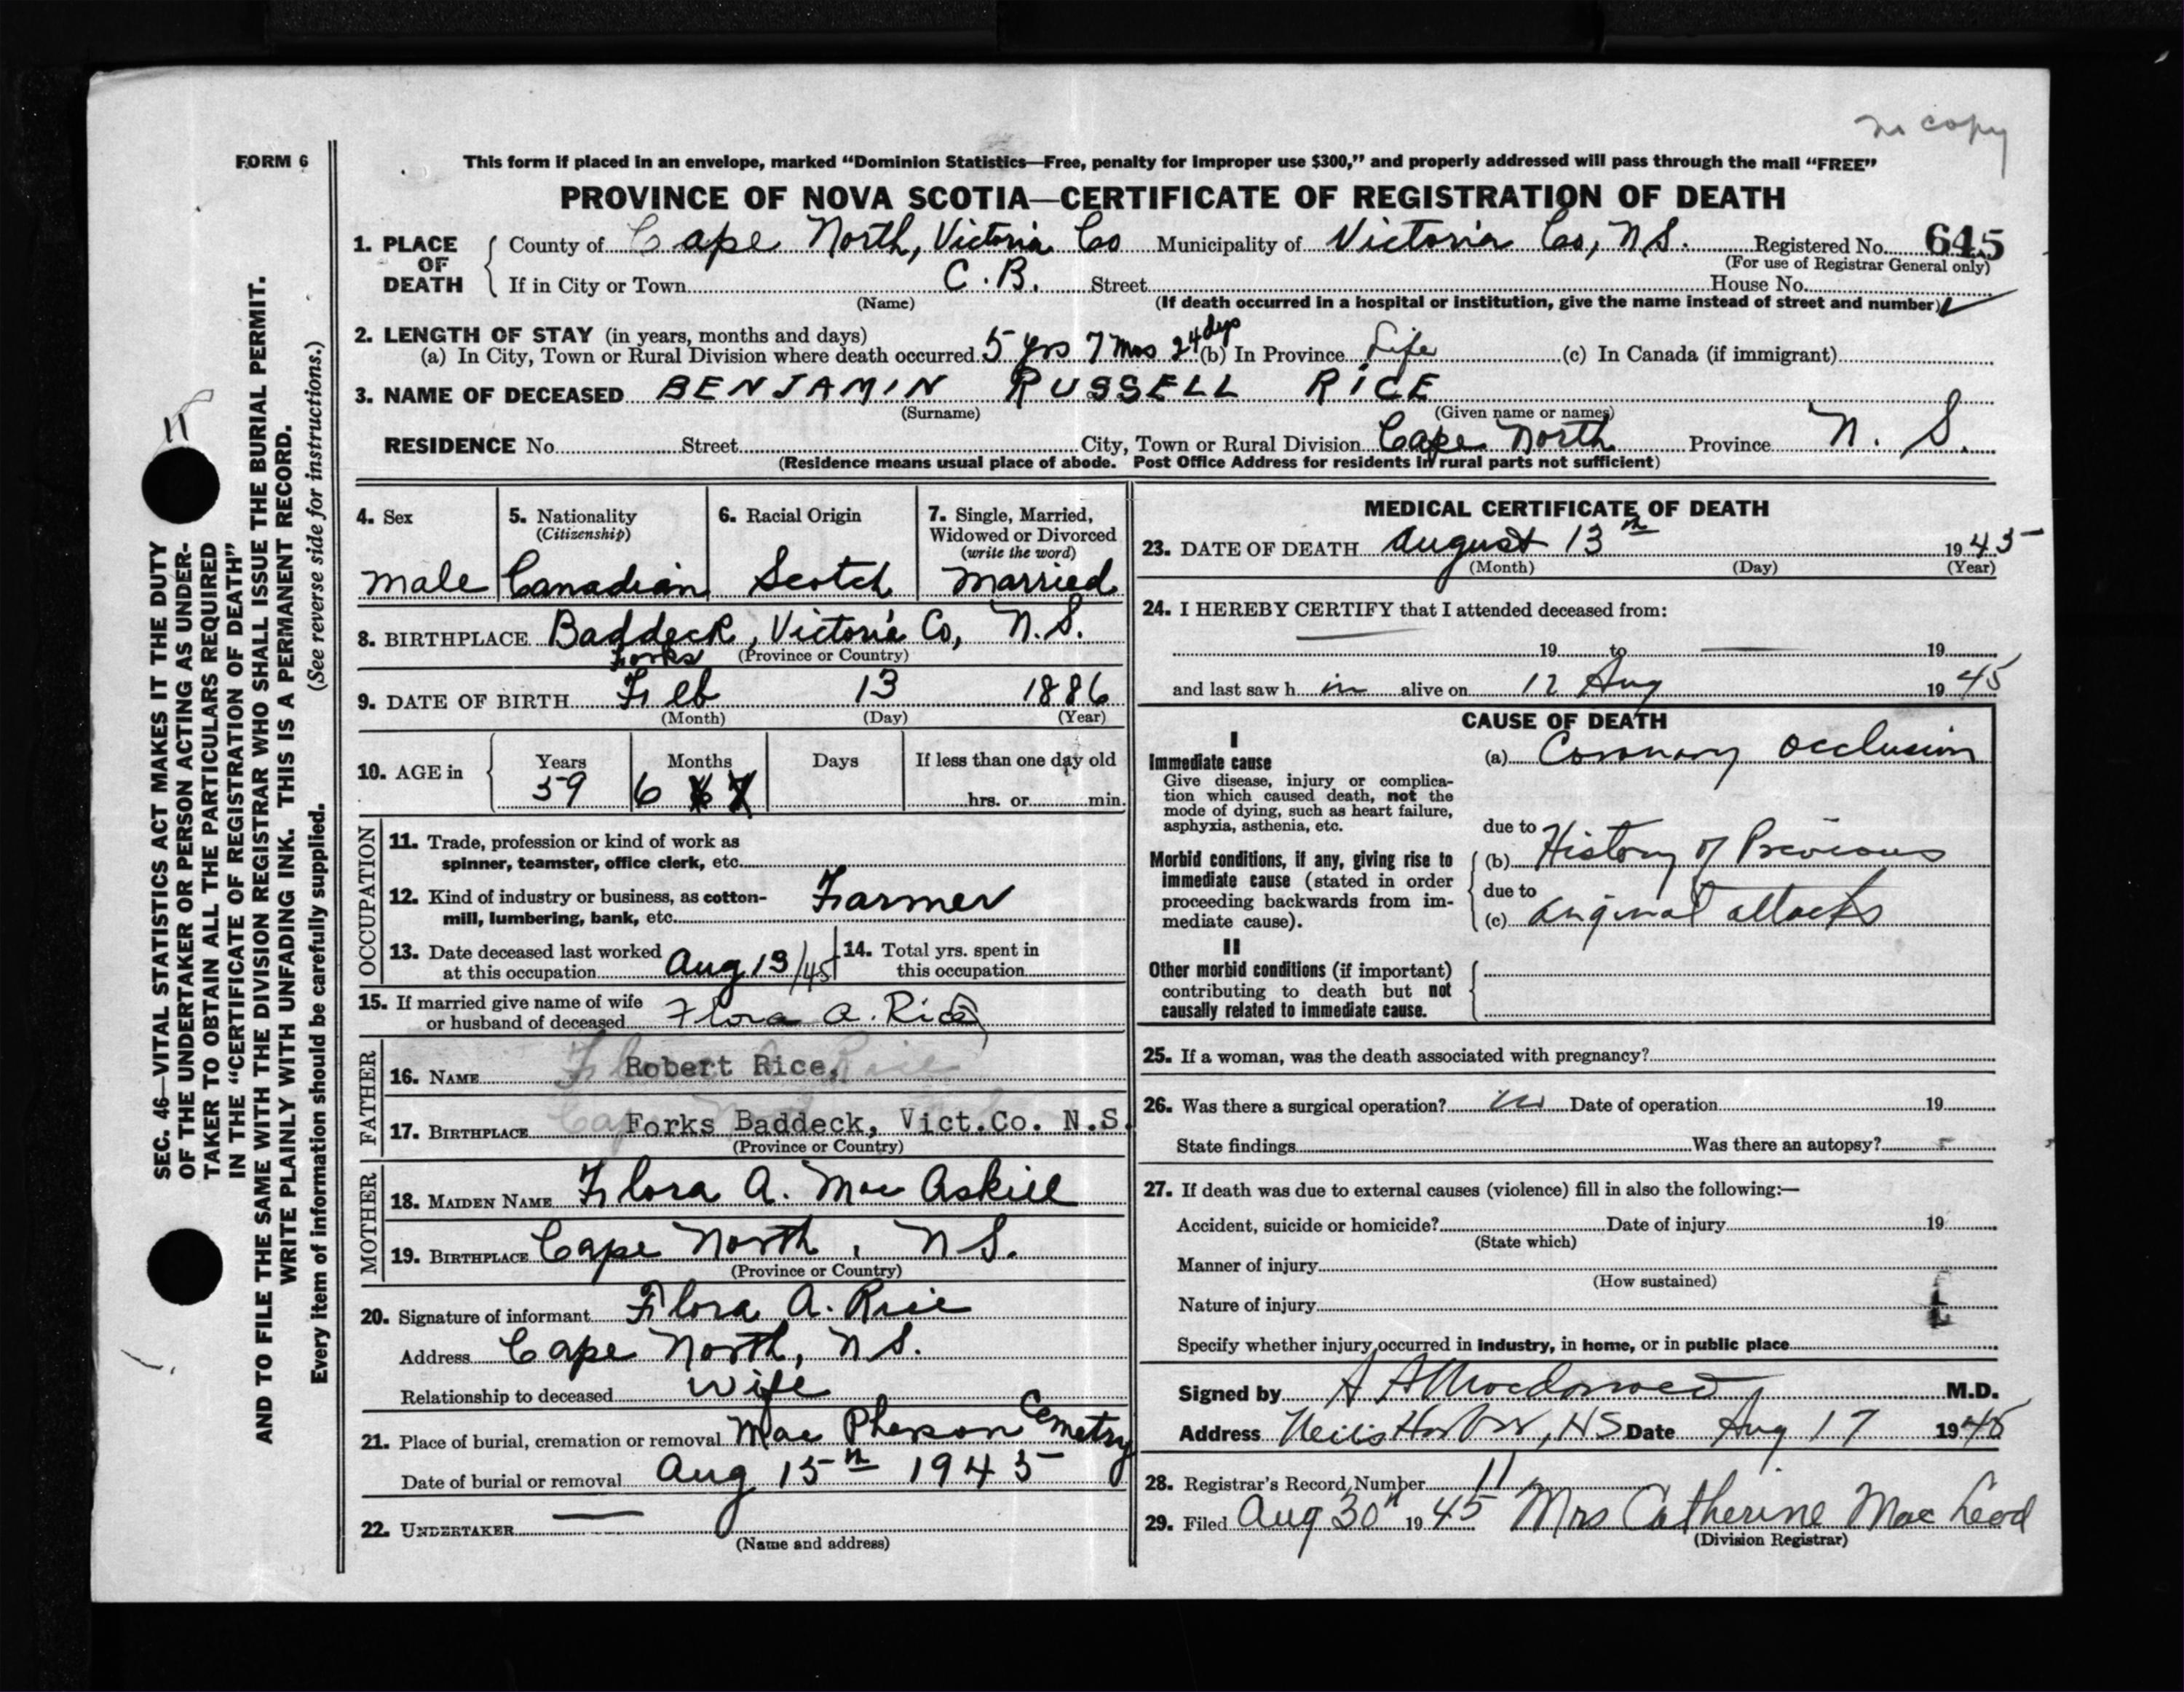 no copy
FORM 6
This form if placed in an envelope, marked “Dominion Statistics—Free, penalty for improper use $300,” and properly addressed will pass through the mail “FREE”
PROVINCE OF NOVA SCOTIA—CERTIFICATE OF REGISTRATION OF DEATH
1. PLACE OF DEATH { County of Cape North, Victoria Co Municipality of Victoria Co, N.S. Registered No. 645
(For use of Registrar General only)
If in City or Town C.B. Street House No.
(Name) (If death occurred in a hospital or institution, give the name instead of street and number)
2. LENGTH OF STAY (in years, months and days)
(a) In City, Town or Rural Division where death occurred 5 yrs 7 mos 24 dys (b) In Province Life (c) In Canada (if immigrant)
3. NAME OF DECEASED BENJAMIN RUSSELL RICE
(Surname) (Given name or names)
RESIDENCE No. Street City, Town or Rural Division Cape North Province N. S.
(Residence means usual place of abode. Post Office Address for residents in rural parts not sufficient)
4. Sex
Male
5. Nationality
(Citizenship)
Canadian
6. Racial Origin
Scotch
7. Single, Married,
Widowed or Divorced
(write the word)
Married
8. BIRTHPLACE Baddeck, Victoria Co, N.S.
Forks (Province or Country)
9. DATE OF BIRTH Feb 13 1886
(Month) (Day) (Year)
10. AGE in { Years Months Days If less than one day old
59 6 hrs. or min.
OCCUPATION
11. Trade, profession or kind of work as
spinner, teamster, office clerk, etc.
12. Kind of industry or business, as cotton-
mill, lumbering, bank, etc. Farmer
13. Date deceased last worked
at this occupation Aug 13/45
14. Total yrs. spent in
this occupation
15. If married give name of wife
or husband of deceased Flora A. Rice
FATHER
16. NAME Robert Rice.
17. BIRTHPLACE Forks Baddeck, Vict.Co. N.S.
(Province or Country)
MOTHER
18. MAIDEN NAME Flora A. Mac Askill
19. BIRTHPLACE Cape North, N.S.
(Province or Country)
20. Signature of informant Flora A. Rice
Address Cape North, N.S.
Relationship to deceased wife
21. Place of burial, cremation or removal Mac Pherson Cemetry
Date of burial or removal Aug 15th 1945
22. UNDERTAKER
(Name and address)
MEDICAL CERTIFICATE OF DEATH
23. DATE OF DEATH August 13th 1945
(Month) (Day) (Year)
24. I HEREBY CERTIFY that I attended deceased from:
19 to 19
and last saw h im alive on 12 Aug 1945
CAUSE OF DEATH
I
Immediate cause
Give disease, injury or complica-
tion which caused death, not the
mode of dying, such as heart failure,
asphyxia, asthenia, etc.
(a) Coronary occlusion
due to
Morbid conditions, if any, giving rise to
immediate cause (stated in order
proceeding backwards from im-
mediate cause).
(b) History of Previous
due to
(c) anginal attacks
II
Other morbid conditions (if important)
contributing to death but not
causally related to immediate cause.
25. If a woman, was the death associated with pregnancy?
26. Was there a surgical operation? no Date of operation 19
State findings Was there an autopsy?
27. If death was due to external causes (violence) fill in also the following:—
Accident, suicide or homicide? Date of injury 19
(State which)
Manner of injury
(How sustained)
Nature of injury
Specify whether injury occurred in industry, in home, or in public place
Signed by A A Macdonald M.D.
Address Neils Harbor, NS Date Aug 17 1945
28. Registrar's Record Number 11
29. Filed Aug 30th 1945 Mrs Catherine Mac Leod
(Division Registrar)
11
SEC. 46—VITAL STATISTICS ACT MAKES IT THE DUTY
OF THE UNDERTAKER OR PERSON ACTING AS UNDER-
TAKER TO OBTAIN ALL THE PARTICULARS REQUIRED
IN THE “CERTIFICATE OF REGISTRATION OF DEATH”
AND TO FILE THE SAME WITH THE DIVISION REGISTRAR WHO SHALL ISSUE THE BURIAL PERMIT.
WRITE PLAINLY WITH UNFADING INK. THIS IS A PERMANENT RECORD.
Every item of information should be carefully supplied. (See reverse side for instructions.)